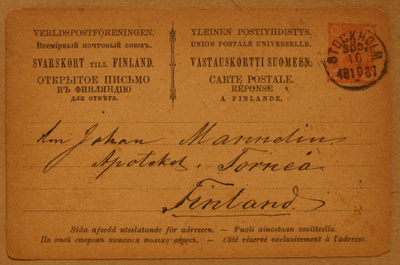 VERLDSPOSTFÖRENINGEN.
Всемірный почтовый союзъ.
SVARSKORT TILL FINLAND.
ОТКРЫТОЕ ПИСЬМО
ВЪ ФИНЛЯНДІЮ
для отвѣта.
YLEINEN POSTIYHDISTYS.
UNION POSTALE UNIVERSELLE.
VASTAUSKORTTI SUOMEEN.
CARTE POSTALE.
RÉPONSE
A FINLANDE.
STOCKHOLM
10
Johan Mannelin
Apoteket, Torneå
Finland.
Sida afsedd uteslutande för adressen. — Puoli ainoastaan osoitteelle.
На этой сторонѣ пишется только адресъ. — Côté réservé exclusivement à l'adresse.